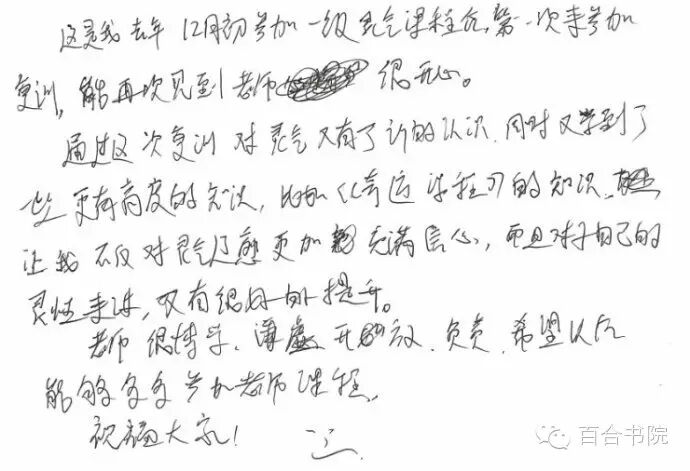 这是我去年12月初参加一级灵气课程后,第一次来参加
复训,能再次见到老师 很开心。
通过这次复训对灵气又有了新的认识,同时又学到了
一些更有高度的知识,比如 课程 的知识,
让我不仅对灵气疗愈更加充满信心,而且对于自己的
灵性 ,又有很好的提升。
老师很博学、谦虚、开放、负责、希望以后
能够多多参加老师课程。
祝福大家!
百合书院